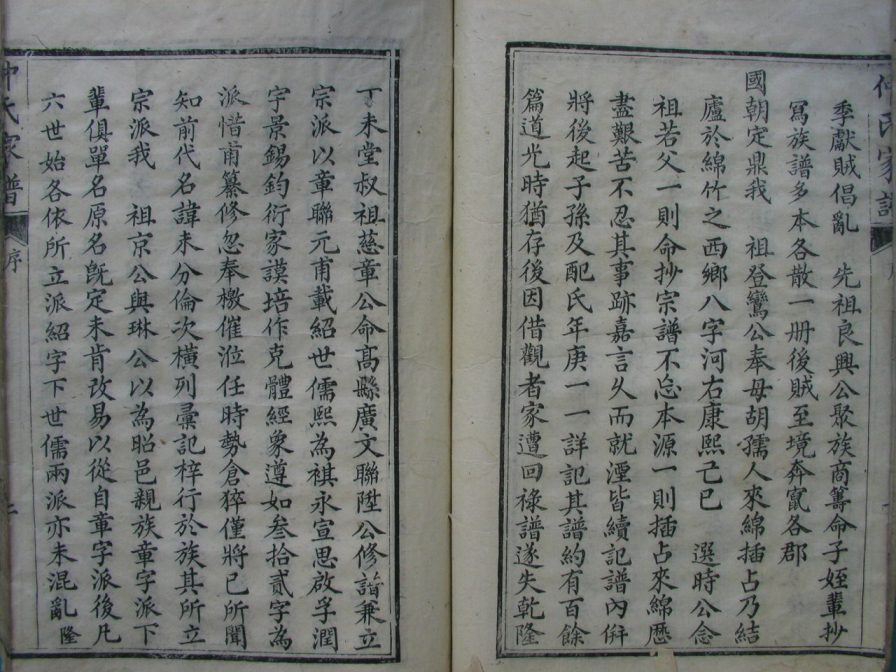 季獻賊倡亂　先祖良興公聚族商籌命子姪輩抄
寫族譜多本各散一册後賊至境奔竄各郡
國朝定鼎我　祖登鸞公奉母胡孺人來綿插占乃結
廬於綿竹之西鄉八字河右康熙己巳　選時公念
祖若父一則命抄宗譜不忘本源一則插占來綿歷
盡艱苦不忍其事跡嘉言久而就湮皆續記譜內併
將後起子孫及配氏年庚一一詳記其譜約有百餘
篇道光時猶存後因借觀者家遭回祿譜遂失乾隆
丁未堂叔祖慈章公命高縣廣文聯陞公修譜兼立
宗派以章聯元甫載紹世儒熙為祺永宣思啟孚潤
字景錫鈞衍家謨培作克體經象遵如叁拾貳字為
派惜甫纂修忽奉檄催涖任時勢倉猝僅將已所聞
知前代名諱未分倫次橫列彙記梓行於族其所立
宗派我　祖京公與琳公以為昭邑親族章字派下
輩俱單名原名既定未肯改易以從自章字派後凡
六世始各依所立派紹字下世儒兩派亦未混亂隆
氏家譜
序